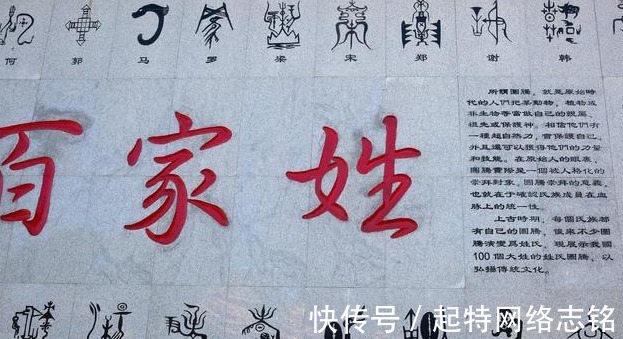 何 郭 马 罗 梁 宋 郑 谢 韩
百家姓
所謂圖騰，就是原始時
代的人們把某動物，植物或
非生物等當做自己的親屬，
祖先或保護神。相信他們有
一種超自然力，會保護自己，
并且還可以獲得他們的力量
和技能。在原始人的眼裏，
圖騰實際是一個被人格化的
崇拜對象。圖騰崇拜的意義，
也就在于確認氏族成員在血
脉上的統一性。
上古時期，每個氏族都
有自己的圖騰，後來不少圖
騰演變爲姓氏，現展示我國
100個大姓的姓氏圖騰，以
弘揚傳統文化。
快传号/起特网络志铭